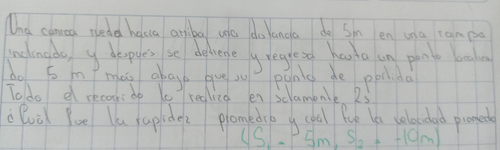 Una canica rueda hacia arriba una distancia de 5m en una rampa
inclinada, y después se detiene y regresa hasta un punto localiza
do 5 m más abajo que su punto de partida
Todo el recorrido lo realiza en solamente 2s.
¿Cuál fue la rapidez promedio y cual fue la velocidad promedio
(S₁ = 5m, S₂ = -10m)